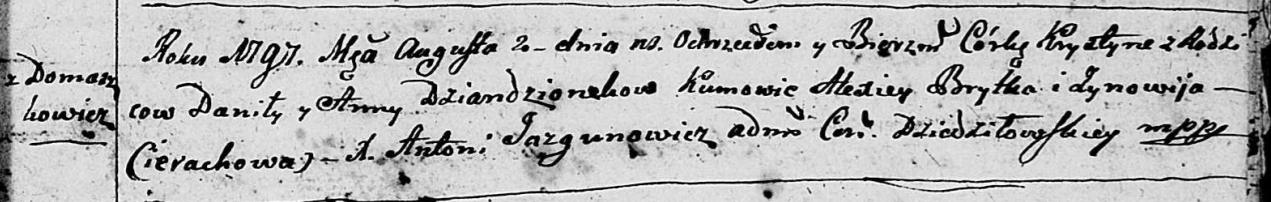 z Domasz
kowicz
Roku 1797. Mca Augusta 2 – dnia ns. Ochrzciłem y Bierzm Córkę Krystynę z Rodzi
cow Daniły y Anny Dziandzionkow Kumowie Alexiey Brytka i Zynowija –
Cierachowa) – X. Antoni Jazgunowicz adm Cer. Dziedziłowskiey mpp